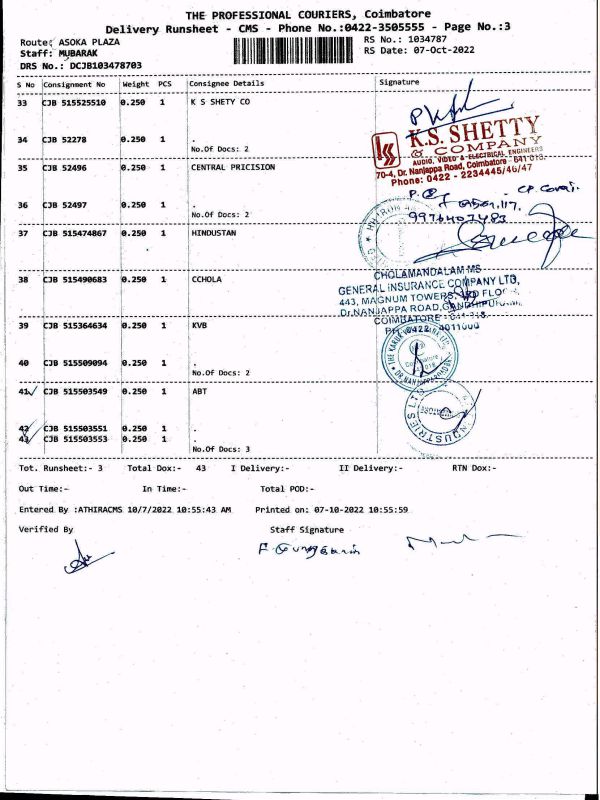 THE PROFESSIONAL COURIERS, Coimbatore
Delivery Runsheet - CMS - Phone No.:0422-3505555 - Page No.:3
Route: ASOKA PLAZA
RS No.: 1034787
Staff: MUBARAK
RS Date: 07-Oct-2022
DRS No.: DCJB103478703
S No Consignment No Weight PCS Consignee Details Signature
33 CJB 515525510 0.250 1 K S SHETY CO
34 CJB 52278 0.250 1 .
No.Of Docs: 2
K.S. SHETTY
& COMPANY
AUDIO, VIDEO & ELECTRICAL ENGINEERS
70-4, Dr. Nanjappa Road, Coimbatore - 641 018.
Phone: 0422 - 2234445/46/47
35 CJB 52496 0.250 1 CENTRAL PRICISION
36 CJB 52497 0.250 1 .
No.Of Docs: 2
9976407483
37 CJB 515474867 0.250 1 HINDUSTAN
38 CJB 515490683 0.250 1 CCHOLA
CHOLAMANDALAM MS
GENERAL INSURANCE COMPANY LTD,
443, MAGNUM TOWERS, FLOOR,
Dr.NANJAPPA ROAD,
COIMBATORE
39 CJB 515364634 0.250 1 KVB
40 CJB 515509094 0.250 1 .
No.Of Docs: 2
41 CJB 515503549 0.250 1 ABT
42 CJB 515503551 0.250 1 .
43 CJB 515503553 0.250 1 .
No.Of Docs: 3
INDUSTRIES LTD
Tot. Runsheet:- 3 Total Dox:- 43 I Delivery:- II Delivery:- RTN Dox:-
Out Time:- In Time:- Total POD:-
Entered By :ATHIRACMS 10/7/2022 10:55:43 AM Printed on: 07-10-2022 10:55:59
Verified By Staff Signature